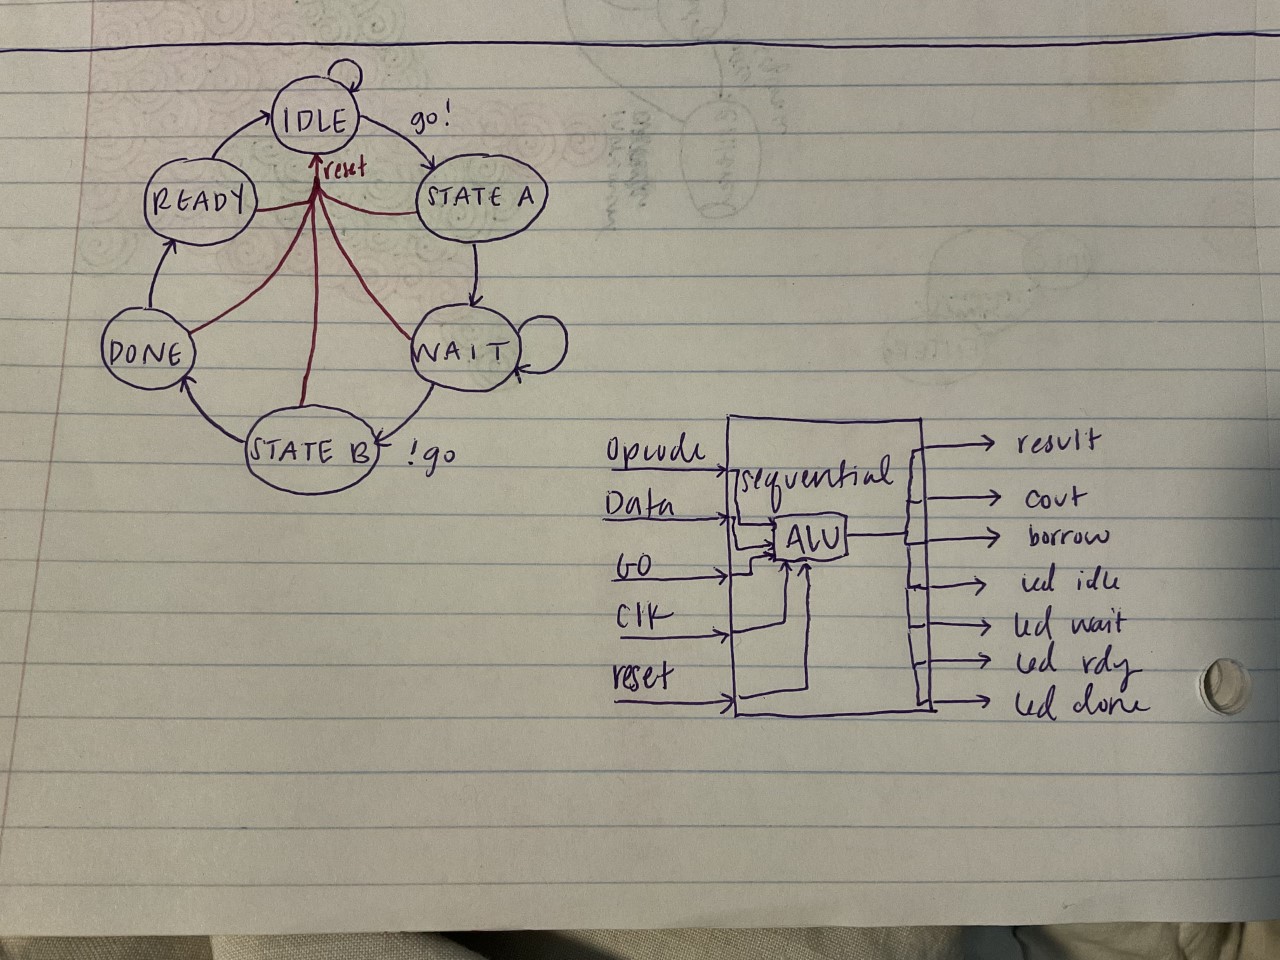 IDLE
go!
reset
READY
STATE A
DONE
WAIT
STATE B
!go
Opcode
Data
GO
Clk
reset
sequential
ALU
result
cout
borrow
led idle
led wait
led rdy
led done